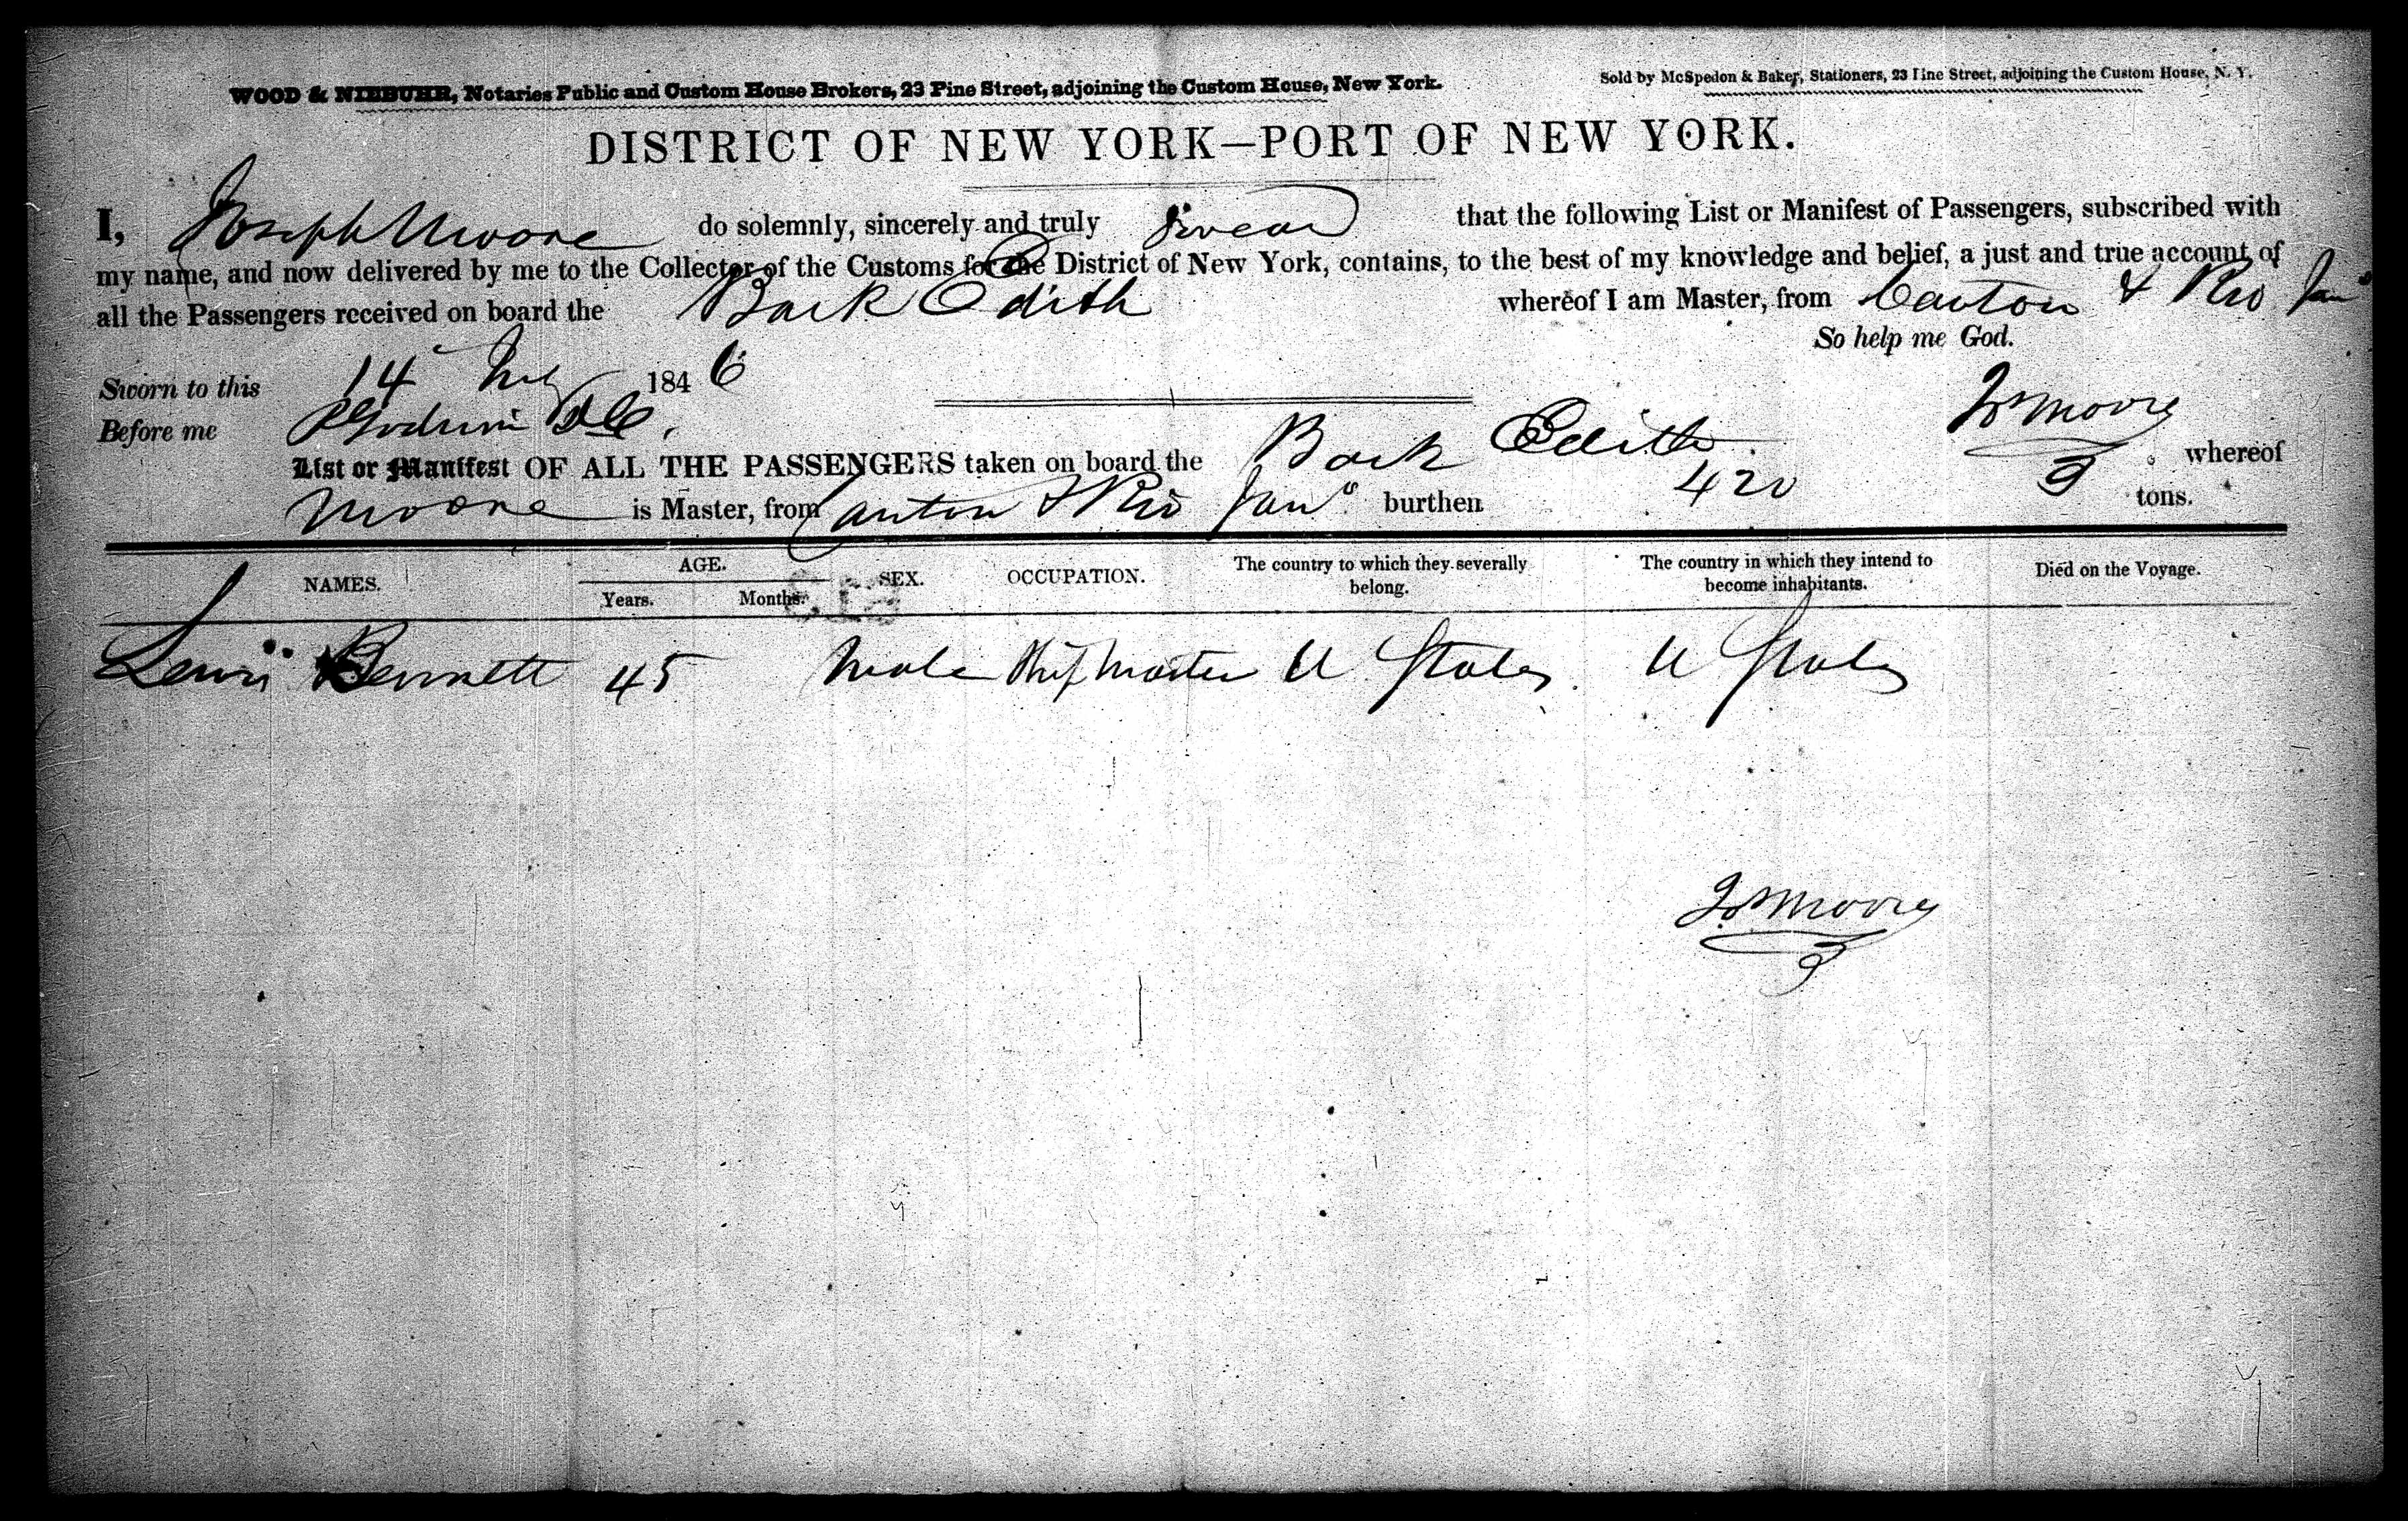 WOOD & NIEBUHR, Notaries Public and Custom House Brokers, 23 Pine Street, adjoining the Custom House, New York.
Sold by McSpedon & Baker, Stationers, 23 Pine Street, adjoining the Custom House, N. Y.
DISTRICT OF NEW YORK—PORT OF NEW YORK.
I, Joseph Moore do solemnly, sincerely and truly swear that the following List or Manifest of Passengers, subscribed with
my name, and now delivered by me to the Collector of the Customs for the District of New York, contains, to the best of my knowledge and belief, a just and true account of
all the Passengers received on board the Bark Edith whereof I am Master, from Canton & Rio Jano
So help me God.
Sworn to this 14 1846
Before me
Jos Moore
List or Manifest OF ALL THE PASSENGERS taken on board the Bark Edith whereof
Moore is Master, from Canton & Rio Jano burthen 420 tons.
NAMES. AGE. Years. Months. SEX. OCCUPATION. The country to which they severally belong. The country in which they intend to become inhabitants. Died on the Voyage.
Lewis Bennett 45 Male Ship Master U States U States
Jos Moore